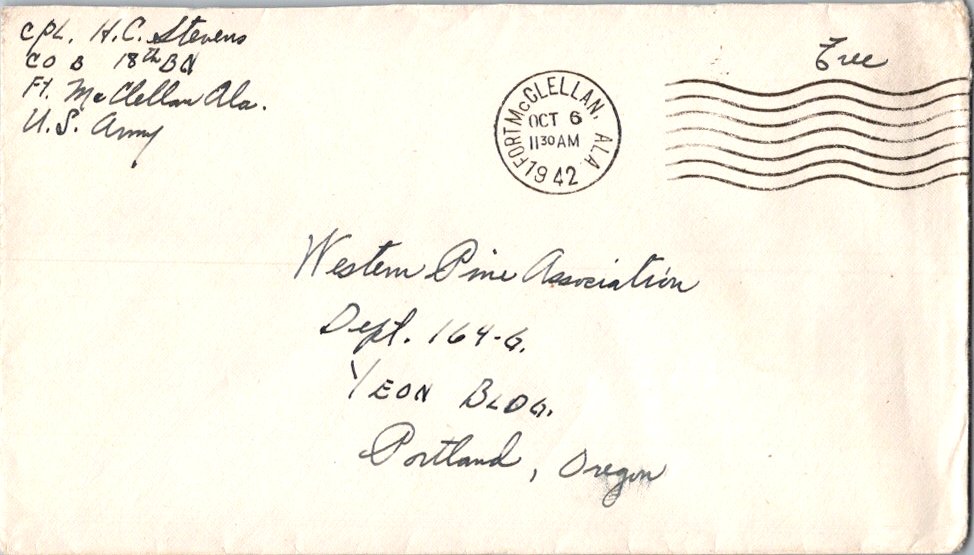 CPL. H.C. Stevens
CO B 18th BN
Ft. McClellan Ala.
U.S. Army
Free
FORT McCLELLAN, ALA
OCT 6
1130 AM
1942
Western Pine Association
Dept. 164-G.
YEON BLDG.
Portland, Oregon